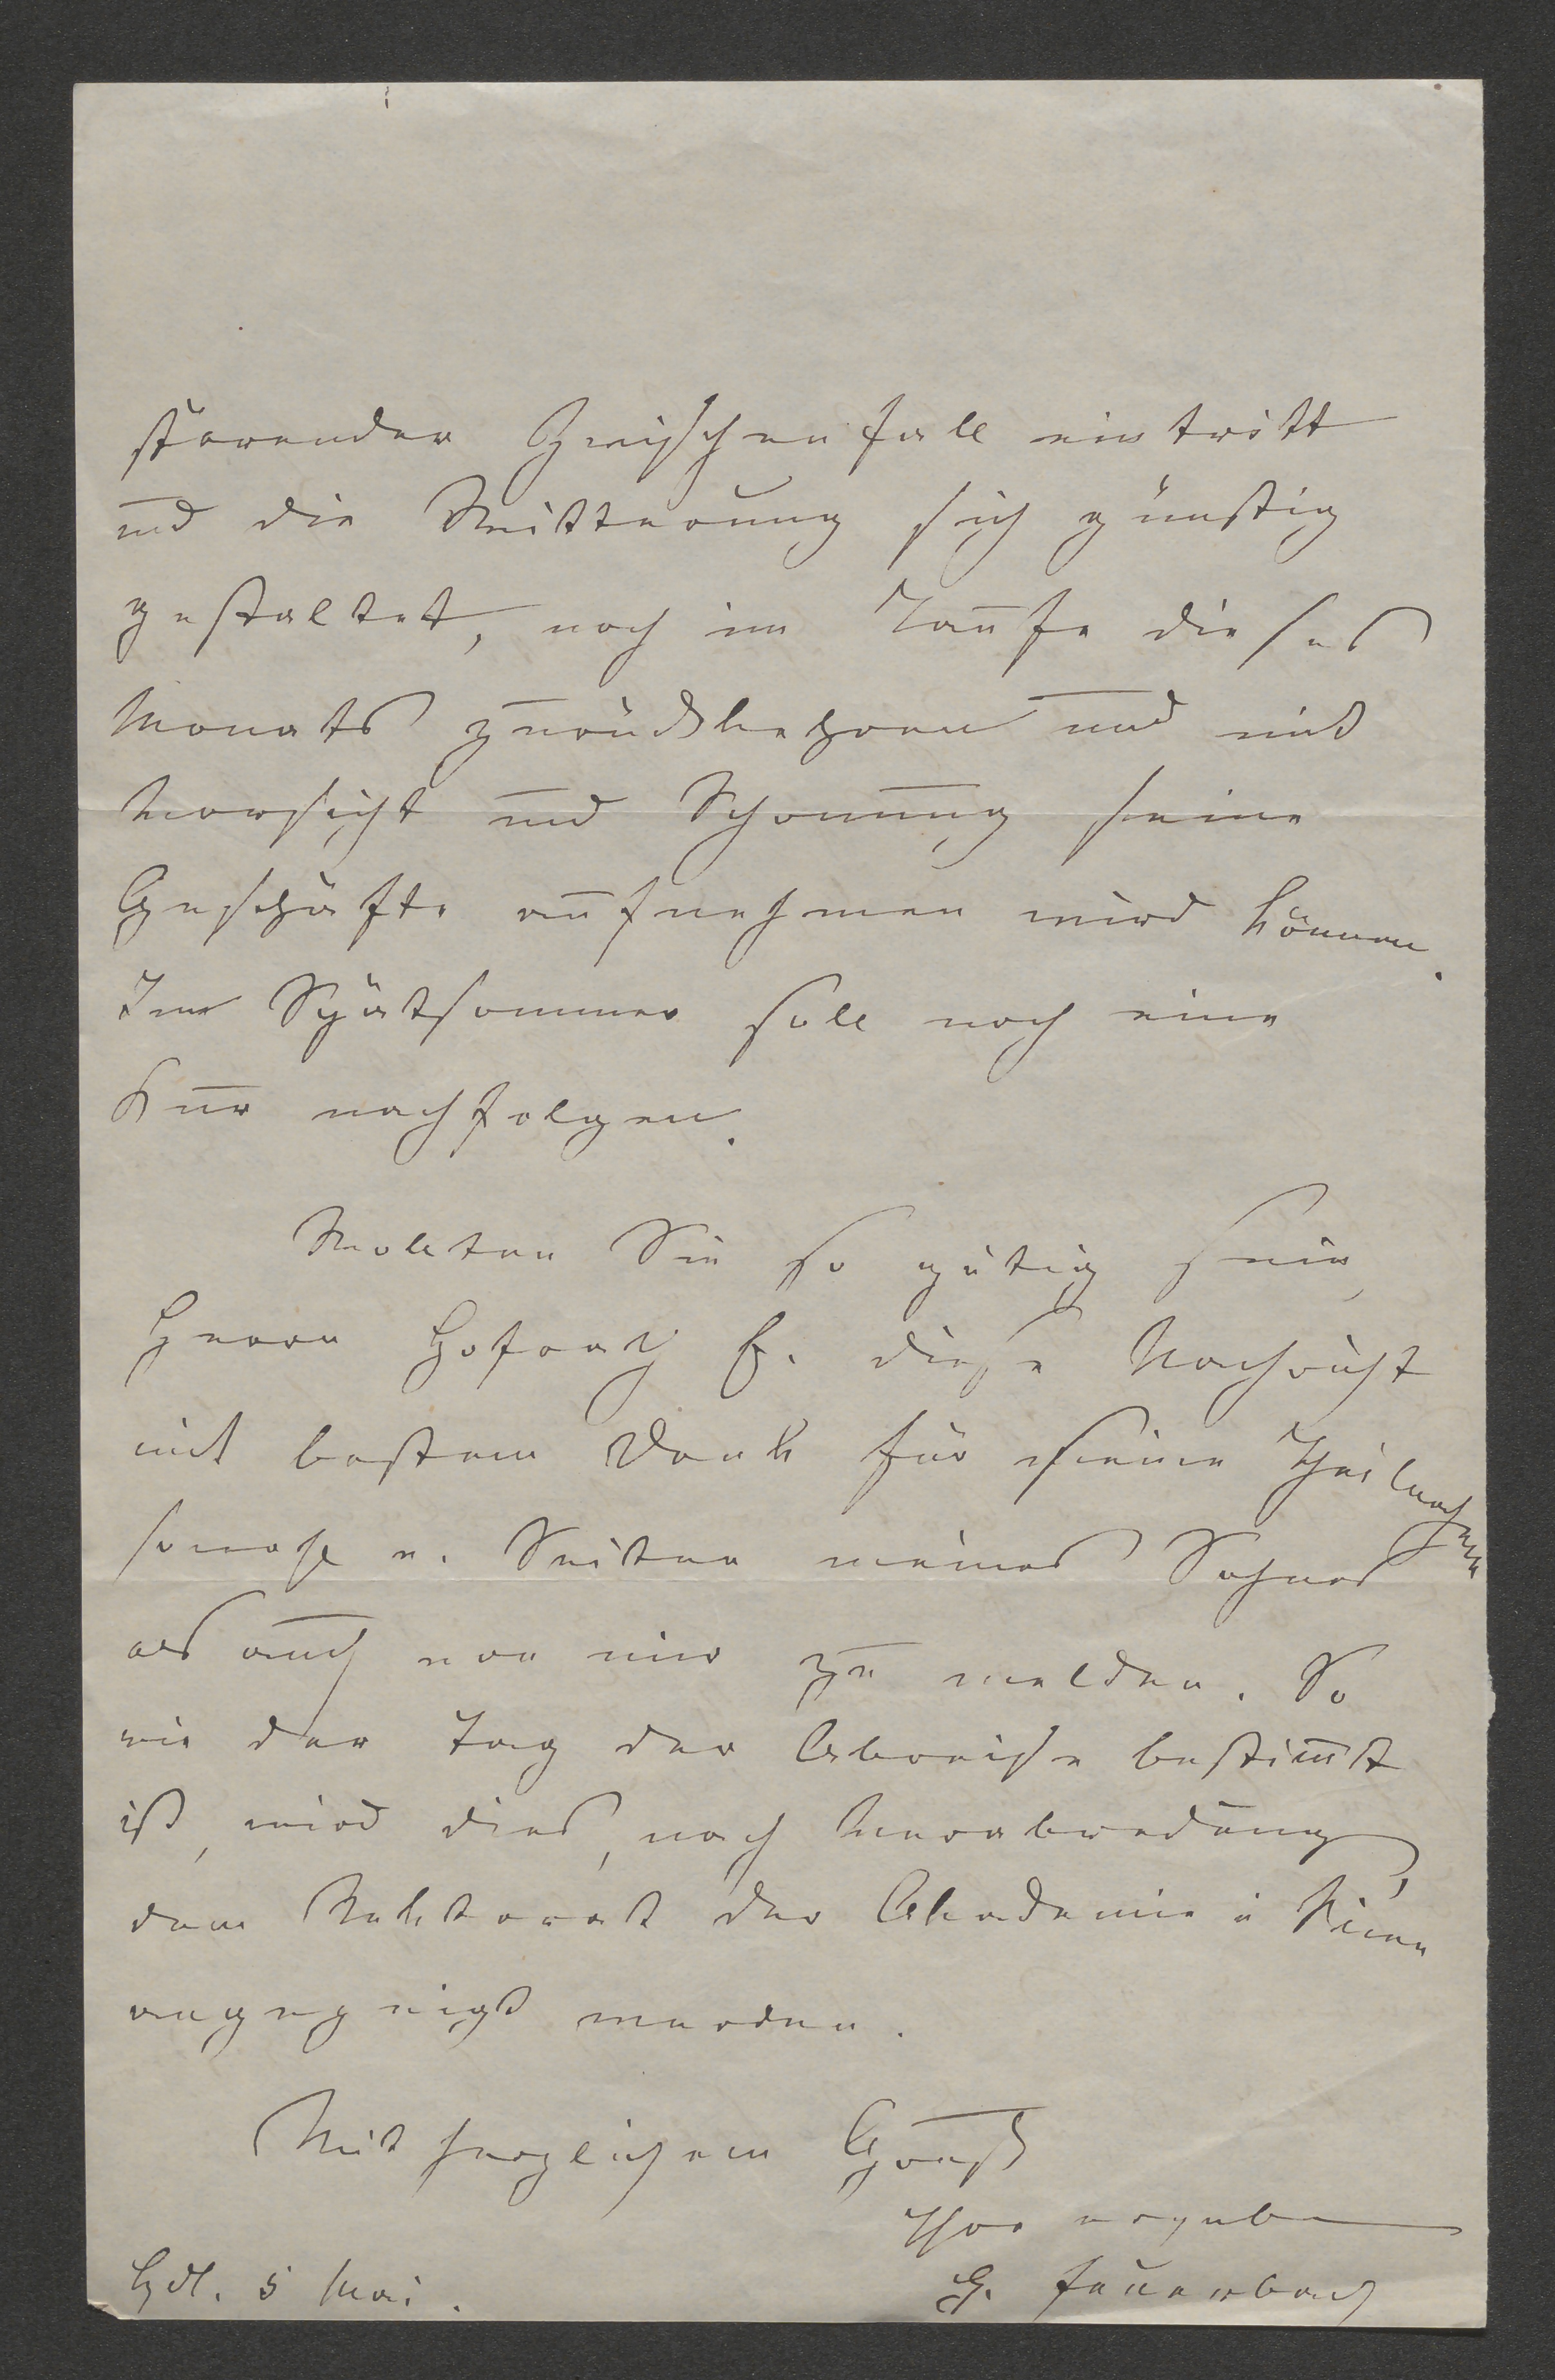 störender Zwischenfall eintritt
und die Witterung sich günstig
gestaltet, noch im Laufe dieses
Monats zurückkehren und mit
Vorsicht und Schonung seine
Geschäfte aufnehmen wird können.
Im Spätsommer soll noch eine
Kur nachfolgen.
Wollten Sie so gütig sein,
Herrn Hofrath E. diese Nachricht
mit bestem Dank für seine Theilnahme
sowohl v. Seiten meines Sohnes
als auch von mir zu melden. So
wie der Tag der Abreise bestimmt
ist, wird dies, nach Verabredung,
dem Rektorat der Akademie i Wien
angezeigt werden.
Mit herzlichem Gruß
Ihre ergebene
H. Feuerbach
Hdl. 5 Mai.